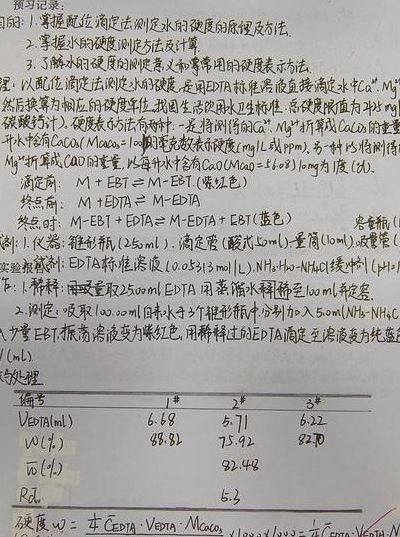 预习记录:
目的: 1. 掌握配位滴定法测定水的硬度的原理及方法.
2. 掌握水的硬度测定方法及计算.
3. 了解水的硬度的测定意义和常用的硬度表示方法.
理: 以配位滴定法测定水的硬度,是用EDTA标准溶液直接滴定水中Ca²⁺、Mg²⁺
然后换算为相应的硬度单位,我国生活饮用水卫生标准:总硬度限值为425mg
(碳酸钙计),硬度表示方法有两种:一是将测得的Ca²⁺、Mg²⁺折算成CaCO₃的重量
升水中含有CaCO₃(Mcaco₃=100)的毫克数表示硬度(mg/L或ppm),另一种以将测得
Mg²⁺折算成CaO的重量,以每升水中含有CaO(Mcao=56.08)10mg为1度(d).
滴定前: M+EBT⇌M-EBT.(紫红色)
终点前: M+EDTA⇌M-EDTA
终点时: M-EBT+EDTA⇌M-EDTA+EBT(蓝色) 容量瓶(1
剂: 1. 仪器:锥形瓶(250ml).滴定管(酸式50ml)-量筒(10ml).吸量管(
实验报 试剂:EDTA标准溶液(0.05313mol/L).NH₃·H₂O-NH₄Cl缓冲剂(pH=1
1. 稀释: 量取25.00ml EDTA 用蒸馏水稀释至100ml并定容.
2. 测定:吸取100.00ml自来水于3个锥形瓶中,分别加入5.0ml(NH₃-NH₄C
入少量EBT,振荡溶液变为紫红色,用稀释过的EDTA滴定至溶液变为纯蓝色
V(ml)
与处理
编号 1# 2# 3#
VEDTA(ml) 6.68 5.71 6.22
W(%) 88.82 75.92 82.70
W̄(%) 82.48
Rd̄. 5.3
硬度W = ¼C̄EDTA·VEDTA·Mcaco₃ ×1000×1000 = ¼C̄EDTA·VEDTA·M